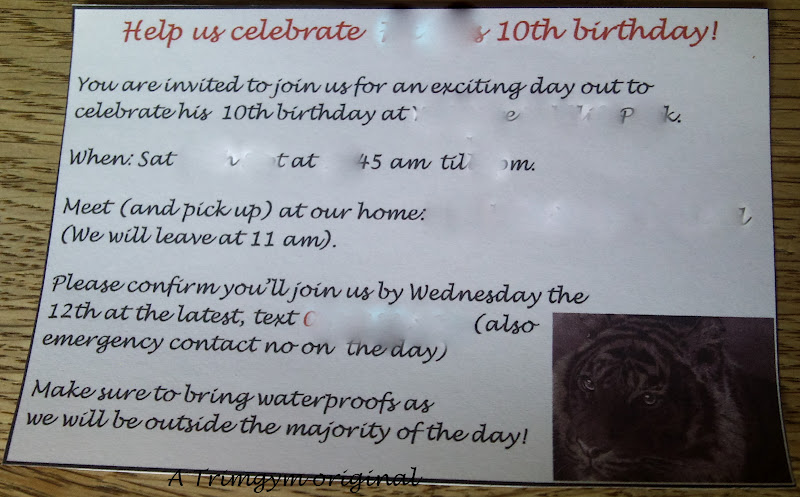 Help us celebrate 10th birthday!
You are invited to join us for an exciting day out to
celebrate his 10th birthday at
When: Sat at 45 am till
Meet (and pick up) at our home:
(We will leave at 11 am).
Please confirm you'll join us by Wednesday the
12th at the latest, text (also
emergency contact no on the day)
Make sure to bring waterproofs as
we will be outside the majority of the day!
A Trimgym original